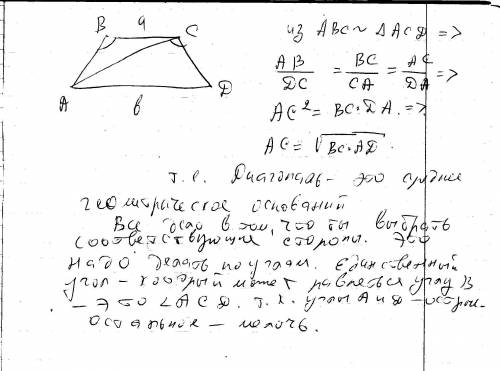 B a C
A в D
из ABC ~ ΔACD =>
AB/DC = BC/CA = AC/DA =>
AC² = BC·DA =>
AC = √BC·AD.
т.е. Диагональ - это среднее
геометрическое оснований
Все дело в том, что ты выбрать
соответствующие стороны. Это
надо делать по углам. Единственный
угол - который может равняться углу B
- это ∠ACD. т.к. углы A и D - острые.
Остальное - мелочь.